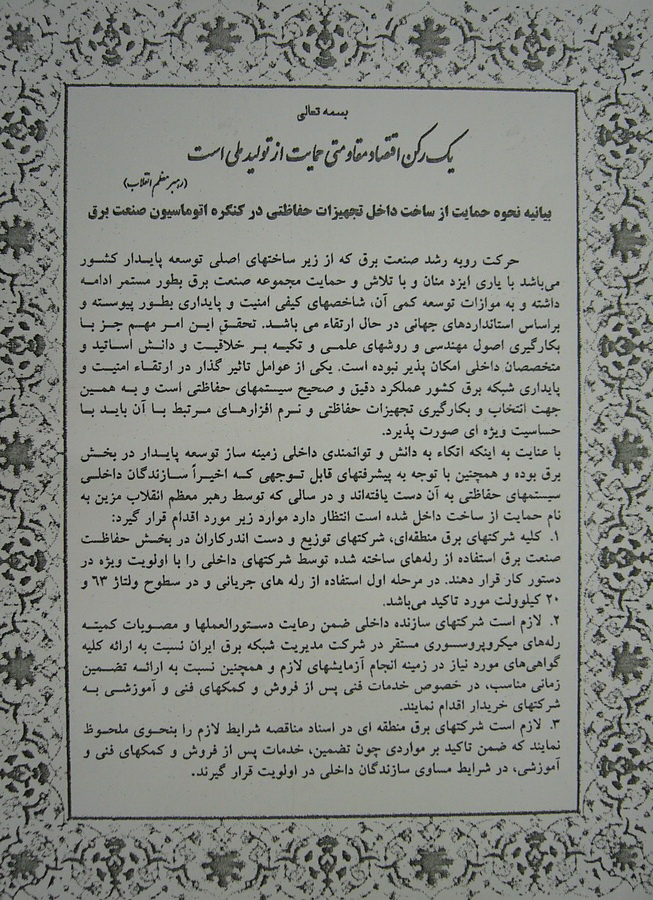 بسمه تعالی
یک رکن اقتصاد مقاومتی حمایت از تولید ملی است
(رهبر معظم انقلاب)
بیانیه نحوه حمایت از ساخت داخل تجهیزات حفاظتی در کنگره اتوماسیون صنعت برق
حرکت روبه رشد صنعت برق که از زیر ساختهای اصلی توسعه پایـدار کشـور
می‌باشد با یاری ایزد منان و با تلاش و حمایت مجموعه صنعت برق بطور مستمر ادامـه
داشته و به موازات توسعه کمی آن، شاخصهای کیفی امنیت و پایداری بطـور پیوسـته و
براساس استانداردهای جهانی در حال ارتقاء می باشـد. تحقـق ایـن امـر مهـم جـز بـا
بکارگیری اصول مهندسی و روشهای علمـی و تکیـه بـر خلاقیـت و دانـش اسـاتید و
متخصصان داخلی امکان پذیر نبوده است. یکی از عوامل تاثیر گذار در ارتقـاء امنیـت و
پایداری شبکه برق کشور عملکرد دقیق و صحیح سیستمهای حفاظتی است و بـه همـین
جهت انتخاب و بکارگیری تجهیزات حفاظتی و نـرم افزارهـای مـرتبط بـا آن بایـد بـا
حساسیت ویژه ای صورت پذیرد.
با عنایت به اینکه اتکاء به دانش و توانمندی داخلی زمینه ساز توسعه پایـدار در بخـش
برق بوده و همچنین با توجه به پیشرفتهای قابل تـوجهی کـه اخیـراً سـازندگان داخلـی
سیستمهای حفاظتی به آن دست یافته‌اند و در سالی که توسط رهبر معظم انقلاب مزین به
نام حمایت از ساخت داخل شده است انتظار دارد موارد زیر مورد اقدام قرار گیرد:
۱. کلیه شرکتهای برق منطقه‌ای، شرکتهای توزیع و دست اندرکاران در بخـش حفاظـت
صنعت برق استفاده از رله‌های ساخته شده توسط شرکتهای داخلی را با اولویت ویژه در
دستور کار قرار دهند. در مرحله اول استفاده از رله های جریانی و در سطوح ولتاژ ۶۳ و
۲۰ کیلوولت مورد تاکید می‌باشد.
۲. لازم است شرکتهای سازنده داخلی ضمن رعایت دستورالعملها و مصـوبات کمیتـه
رله‌های میکروپروسـسوری مستقر در شرکت مدیریت شبکه برق ایران نسبت به ارائه کلیه
گواهی‌های مورد نیاز در زمینه انجام آزمایشهای لازم و همچنین نسبت به ارائـه تضـمین
زمانی مناسب، در خصوص خدمات فنی پس از فروش و کمکهای فنی و آموزشـی بـه
شرکتهای خریدار اقدام نمایند.
۳. لازم است شرکتهای برق منطقه ای در اسناد مناقصه شرایط لازم را بنحـوی ملحـوظ
نمایند که ضمن تاکید بر مواردی چون تضمین، خدمات پس از فروش و کمکهای فنی و
آموزشی، در شرایط مساوی سازندگان داخلی در اولویت قرار گیرند.